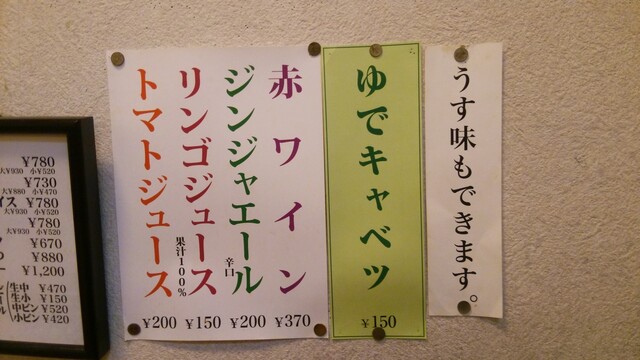 うす味もできます。
ゆでキャベツ
¥150
赤ワイン
¥370
ジンジャエール
辛口
¥200
リンゴジュース
果汁100%
¥150
トマトジュース
¥200
¥780
大¥930 小¥520
¥730
大¥880 小¥470
イス ¥780
大¥930 小¥520
¥780
大¥930 小¥520
¥670
¥880
¥1,200
生中 ¥470
生小 ¥150
中ビン ¥520
小ビン ¥420